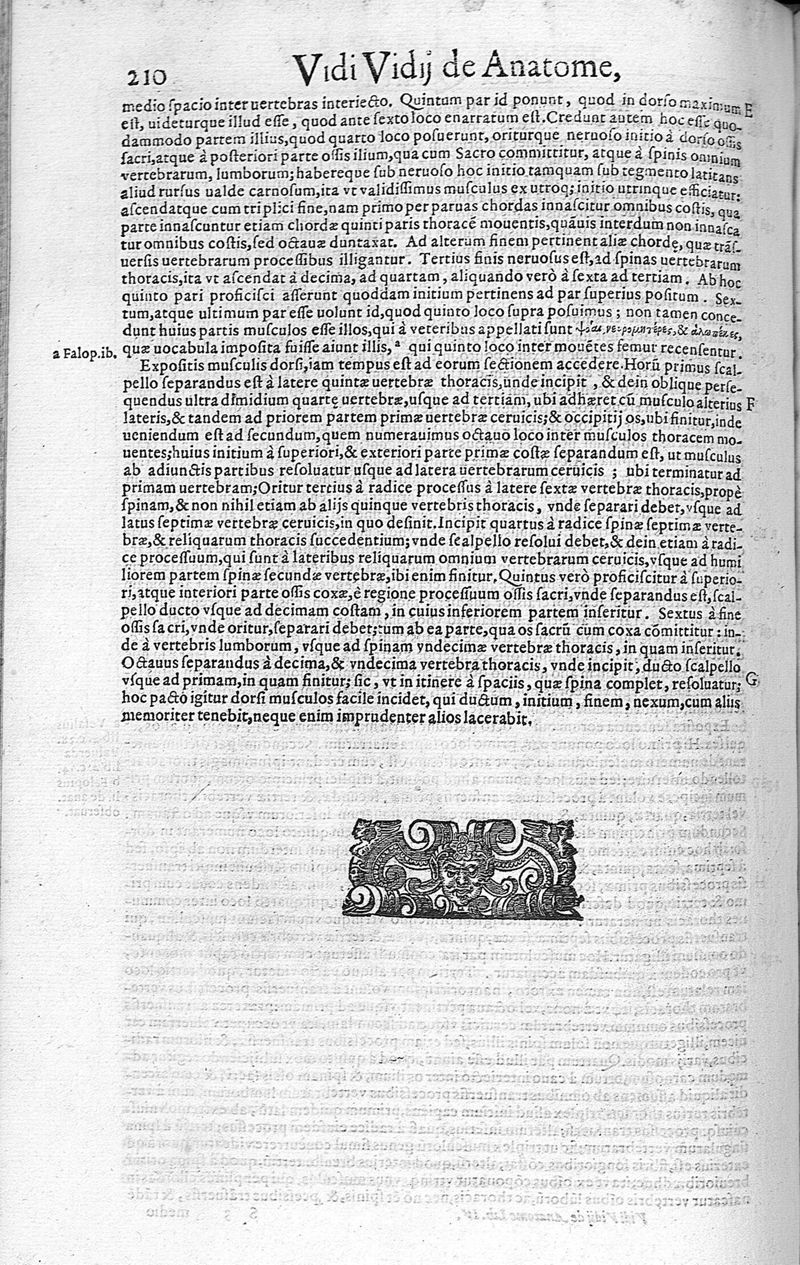 210 Vidi Vidij de Anatome,
medio spacio inter uertebras interiecto. Quintum par id ponunt, quod in dorso maximum E
est, uideturque illud esse, quod ante sexto loco enarratum est. Credunt autem hoc esse quo-
dammodo partem illius, quod quarto loco posuerunt, oriturque neruoso initio à dorso ossis
sacri, atque à posteriori parte ossis ilium, qua cum Sacro committitur, atque à spinis omnium
vertebrarum, lumborum; habereque sub neruoso hoc initio tamquam sub tegmento latitans
aliud rursus ualde carnosum, ita vt validissimus musculus ex utroq; initio utrinque efficiatur:
ascendatque cum triplici fine, nam primo per paruas chordas innascitur omnibus costis, qua
parte innascuntur etiam chordæ quinti paris thoracẽ mouentis, quãuis interdum non innasca
tur omnibus costis, sed octauæ duntaxat. Ad alterum finem pertinent aliæ chordę, quæ trãs-
uersis uertebrarum processibus illigantur. Tertius finis neruosus est, ad spinas uertebrarum
thoracis, ita vt ascendat à decima, ad quartam, aliquando verò à sexta ad tertiam. Ab hoc
quinto pari proficisci asserunt quoddam initium pertinens ad par superius positum. Sex-
tum, atque ultimum par esse uolunt id, quod quinto loco supra posuimus; non tamen conce-
dunt huius partis musculos esse illos, qui à veteribus appellati sunt ψόαι, νευρομητέρες, & ἀλωπέκες,
a Falop. ib. quæ uocabula imposita fuisse aiunt illis, a qui quinto loco inter mouẽtes femur recensentur.
Expositis musculis dorsi, iam tempus est ad eorum sectionem accedere. Horũ primus scal-
pello separandus est à latere quintæ uertebræ thoracis, unde incipit, & dein oblique perse-
quendus ultra dimidium quartę uertebræ, usque ad tertiam, ubi adhæret cũ musculo alterius F
lateris, & tandem ad priorem partem primæ uertebræ ceruicis; & occipitij os, ubi finitur, inde
ueniendum est ad secundum, quem numerauimus octauo loco inter musculos thoracem mo-
uentes; huius initium à superiori, & exteriori parte primæ costæ separandum est, ut musculus
ab adiunctis partibus resoluatur usque ad latera uertebrarum ceruicis; ubi terminatur ad
primam uertebram; Oritur tertius à radice processus à latere sextæ vertebræ thoracis, propè
spinam, & non nihil etiam ab alijs quinque vertebris thoracis, vnde separari debet, vsque ad
latus septimæ vertebræ ceruicis, in quo desinit. Incipit quartus à radice spinæ septimæ verte-
bræ, & reliquarum thoracis succedentium; vnde scalpello resolui debet, & dein etiam à radi-
ce processuum, qui sunt à lateribus reliquarum omnium vertebrarum ceruicis, vsque ad humi
liorem partem spinæ secundæ vertebræ, ibi enim finitur. Quintus verò proficiscitur à superio-
ri, atque interiori parte ossis coxæ, è regione processuum ossis sacri, vnde separandus est, scal-
pello ducto vsque ad decimam costam, in cuius inferiorem partem inseritur. Sextus à fine
ossis sacri, vnde oritur, separari debet; tum ab ea parte, qua os sacrũ cum coxa cõmittitur: in-
de à vertebris lumborum, vsque ad spinam vndecimæ vertebræ thoracis, in quam inseritur.
Octauus separandus à decima, & vndecima vertebra thoracis, vnde incipit, ducto scalpello
vsque ad primam, in quam finitur; sic, vt in itinere à spaciis, quæ spina complet, resoluatur; G
hoc pacto igitur dorsi musculos facile incidet, qui ductum, initium, finem, nexum, cum aliis
memoriter tenebit, neque enim imprudenter alios lacerabit.